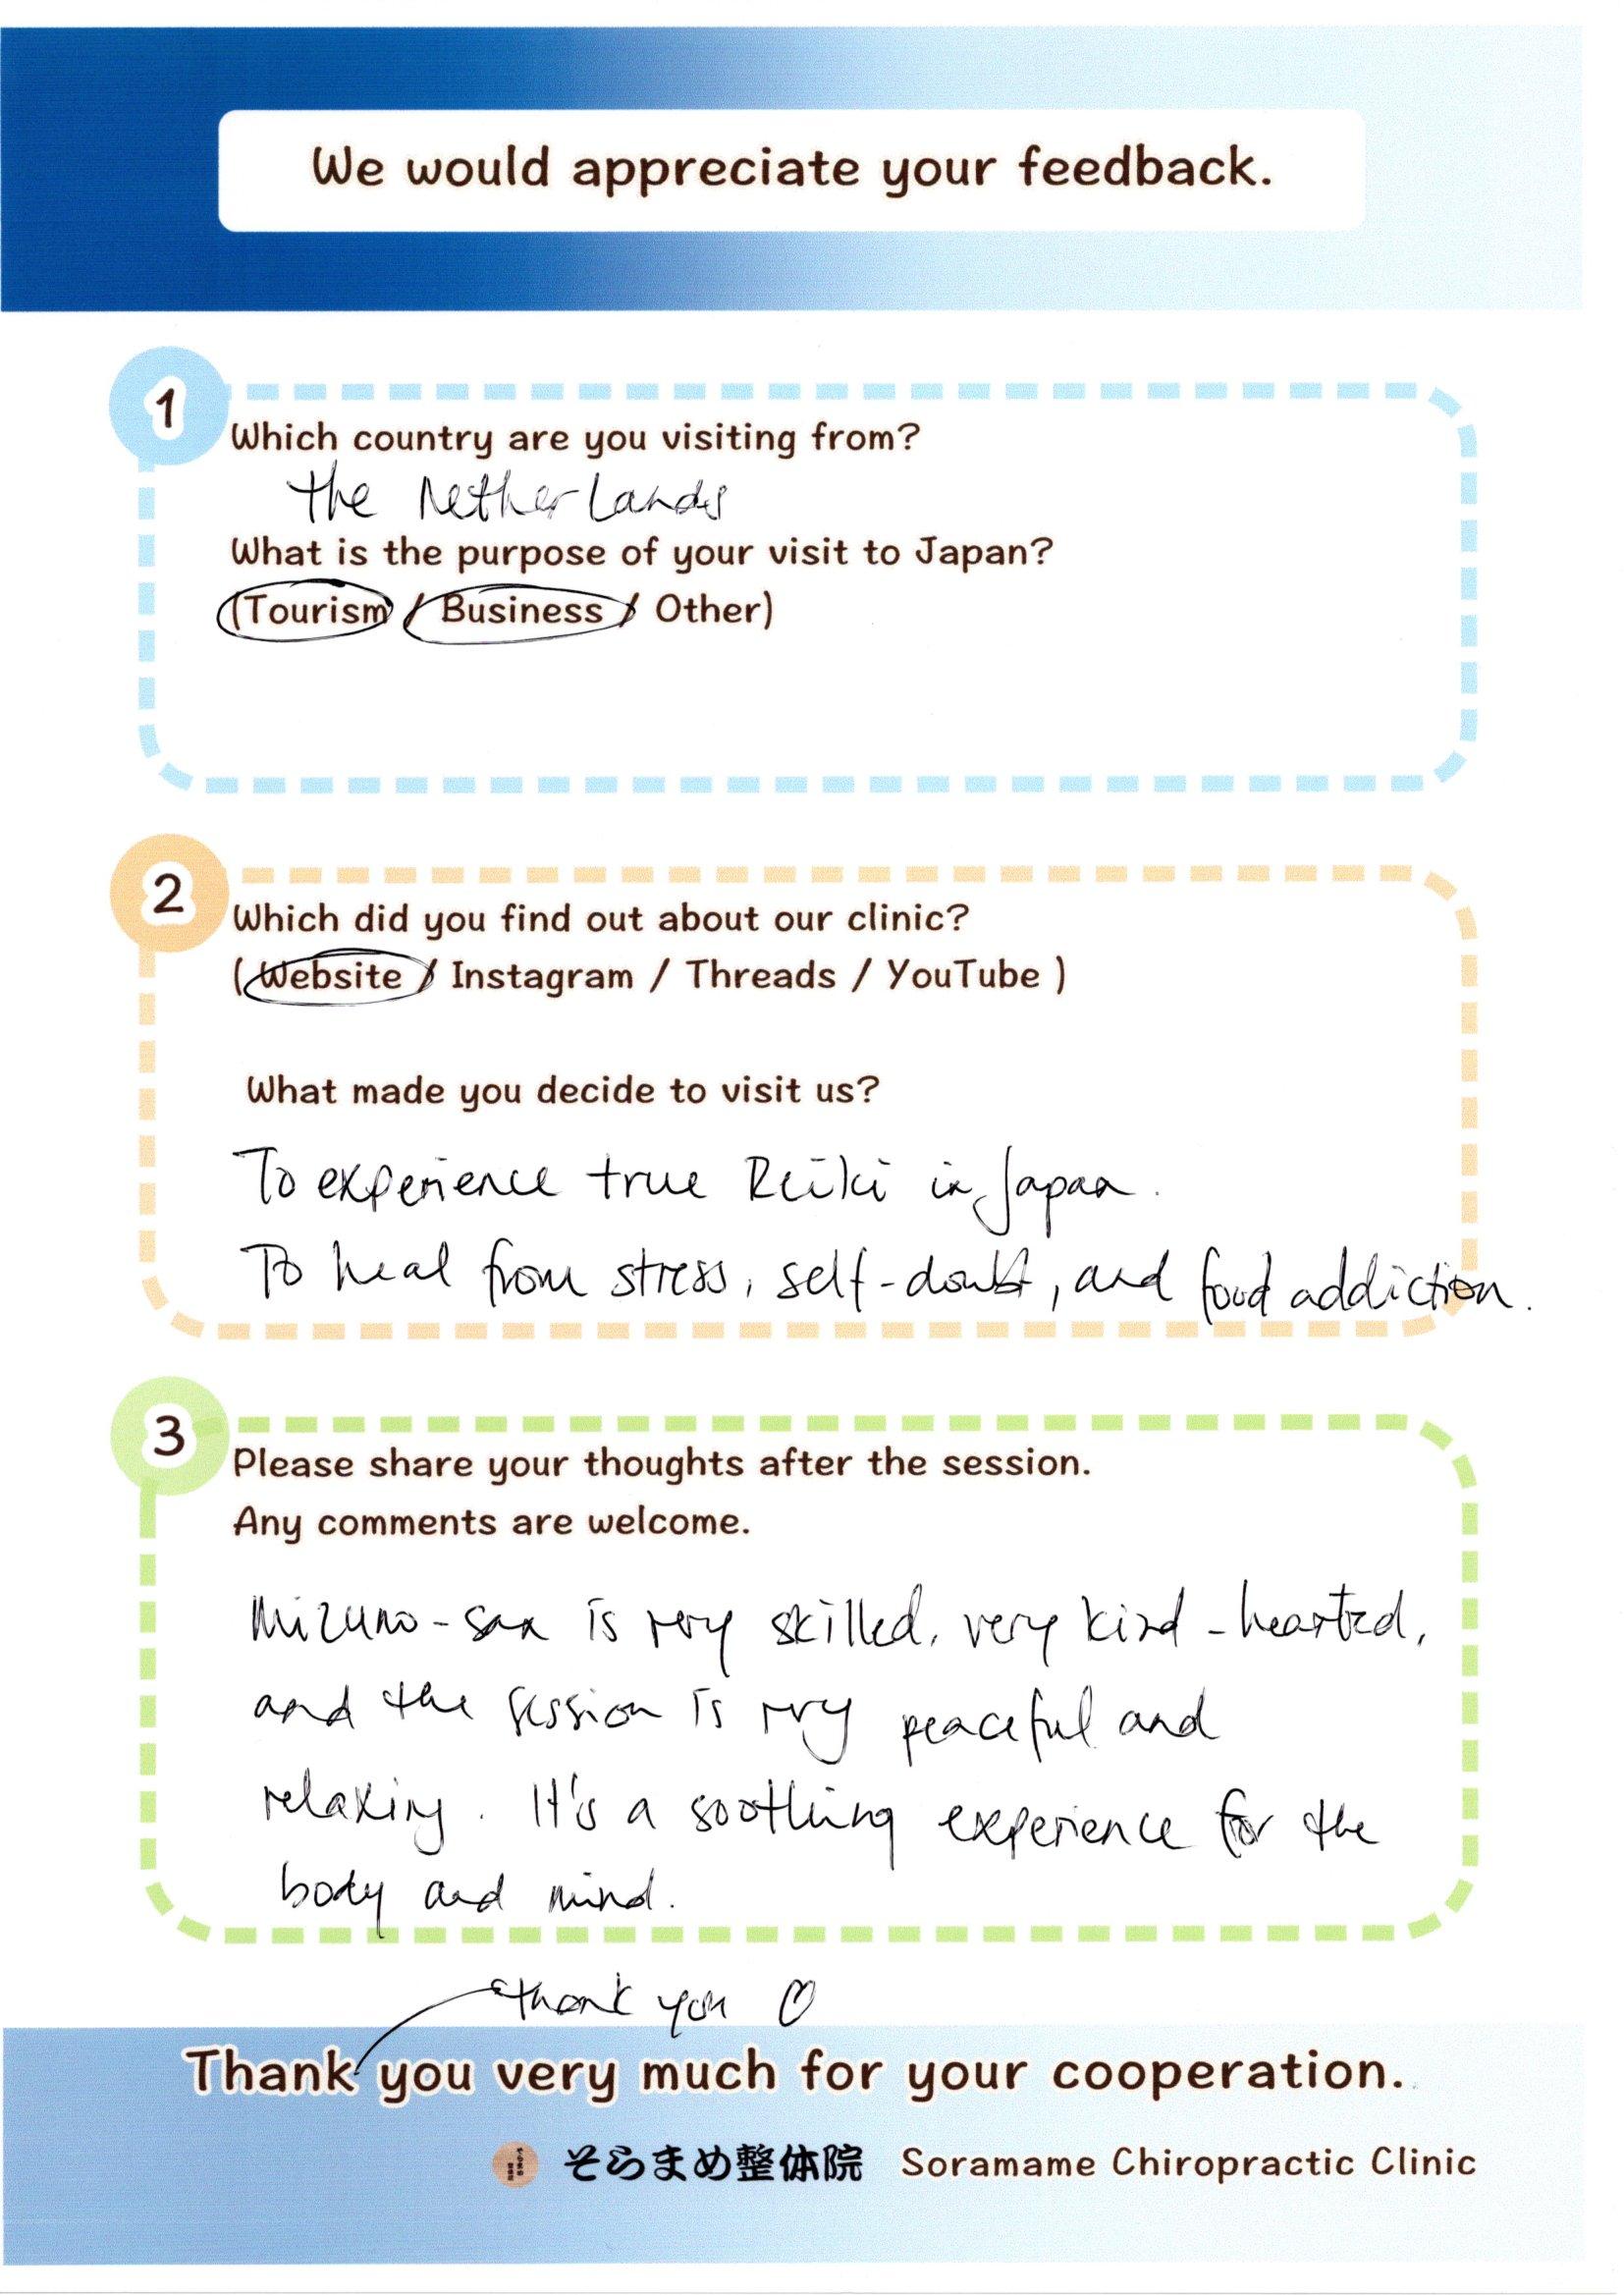 We would appreciate your feedback.
1
Which country are you visiting from?
the Netherlands
What is the purpose of your visit to Japan?
(Tourism / Business / Other)
2
Which did you find out about our clinic?
( Website / Instagram / Threads / YouTube )
What made you decide to visit us?
To experience true Reiki in Japan.
To heal from stress, self-doubt, and food addiction.
3
Please share your thoughts after the session.
Any comments are welcome.
Mizuno-san is very skilled, very kind-hearted,
and the session is very peaceful and
relaxing. It's a soothing experience for the
body and mind.
thank you ♡
Thank you very much for your cooperation.
そらまめ整体院 Soramame Chiropractic Clinic